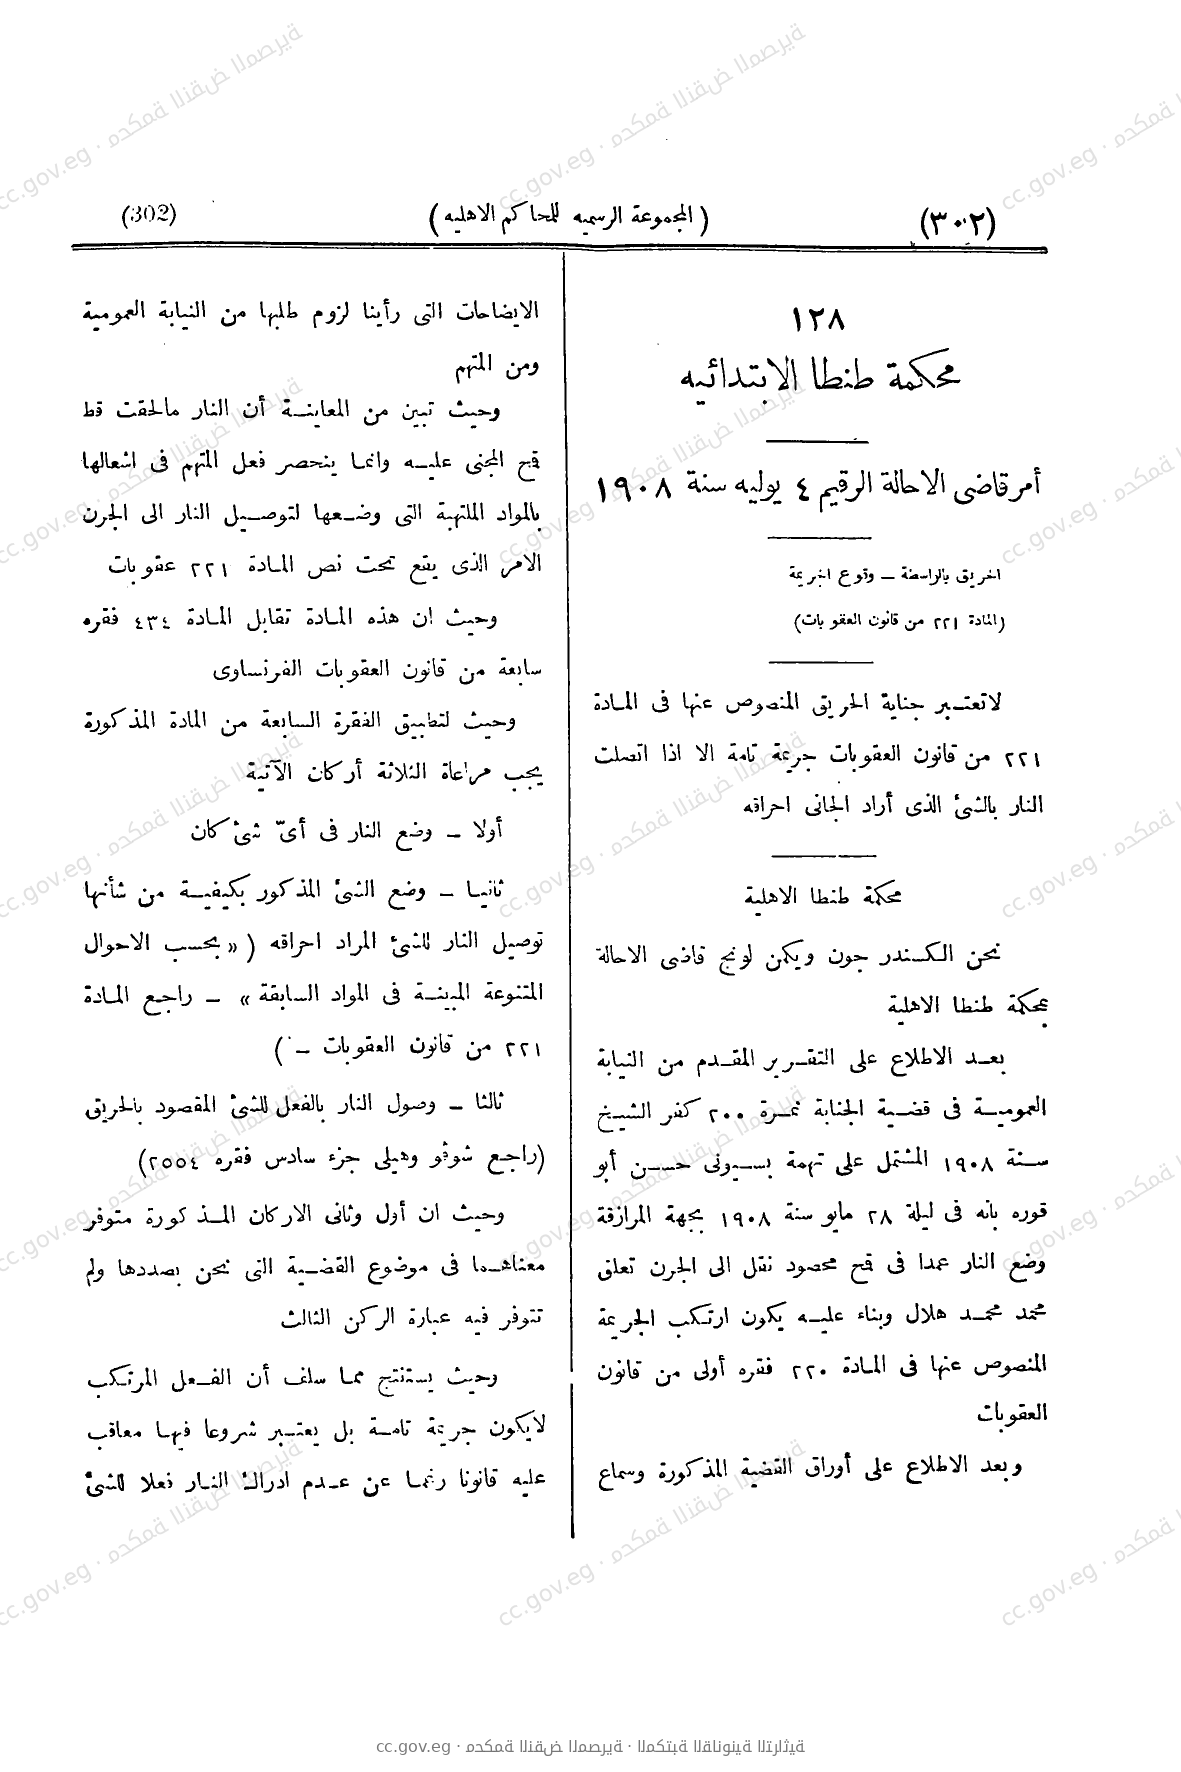 (٣٠٢)
( المجموعة الرسميه للمحاكم الاهليه )
(302)
١٢٨
محكمة طنطا الابتدائيه
أمر قاضى الاحالة الرقيم ٤ يوليه سنة ١٩٠٨
الحريق بالواسطة – وقوع الجريمة
(المادة ٢٢١ من قانون العقوبات)
لا تعتبر جناية الحريق المنصوص عنها فى المادة
٢٢١ من قانون العقوبات جريمة تامة الا اذا اتصلت
النار بالشئ الذى أراد الجانى احراقه
محكمة طنطا الاهلية
نحن الكسندر جون ويكمن لونج قاضى الاحالة
بمحكمة طنطا الاهلية
بعد الاطلاع على التقرير المقدم من النيابة
العمومية فى قضية الجناية نمرة ٢٠٠ كفر الشيخ
سنة ١٩٠٨ المشتمل على تهمة بسيونى حسن أبو
قوره بانه فى ليلة ٢٨ مايو سنة ١٩٠٨ بجهة المرازقة
وضع النار عمدا فى قمح محصود نقل الى الجرن تعلق
محمد محمد هلال وبناء عليه يكون ارتكب الجريمة
المنصوص عنها فى المادة ٢٢٠ فقره أولى من قانون
العقوبات
وبعد الاطلاع على أوراق القضية المذكورة وسماع
الايضاحات التى رأينا لزوم طلبها من النيابة العمومية
ومن المتهم
وحيث تبين من المعاينة أن النار مالحقت قط
قمح المجنى عليه وانما ينحصر فعل المتهم فى اشعالها
بالمواد الملتهبة التى وضعها لتوصيل النار الى الجرن
الامر الذى يقع تحت نص المادة ٢٢١ عقوبات
وحيث ان هذه المادة تقابل المادة ٤٣٤ فقره
سابعة من قانون العقوبات الفرنساوى
وحيث لتطبيق الفقرة السابعة من المادة المذكورة
يجب مراعاة الثلاثة أركان الآتية
أولا – وضع النار فى أىّ شئ كان
ثانيا – وضع الشئ المذكور بكيفية من شأنها
توصيل النار للشئ المراد احراقه ( « بحسب الاحوال
المتنوعة المبينة فى المواد السابقة » – راجع المادة
٢٢١ من قانون العقوبات – )
ثالثا – وصول النار بالفعل للشئ المقصود بالحريق
(راجع شوفو وهيلى جزء سادس فقره ٢٥٥٤)
وحيث ان أول وثانى الاركان المذكورة متوفر
معناهما فى موضوع القضية التى نحن بصددها ولم
تتوفر فيه عبارة الركن الثالث
وحيث يستنتج مما سلف أن الفعل المرتكب
لا يكون جريمة تامة بل يعتبر شروعا فيها معاقب
عليه قانونا رغما عن عدم ادراك النار فعلا للشئ
cc.gov.eg · محكمة النقض المصرية · المكتبة القانونية التراثية